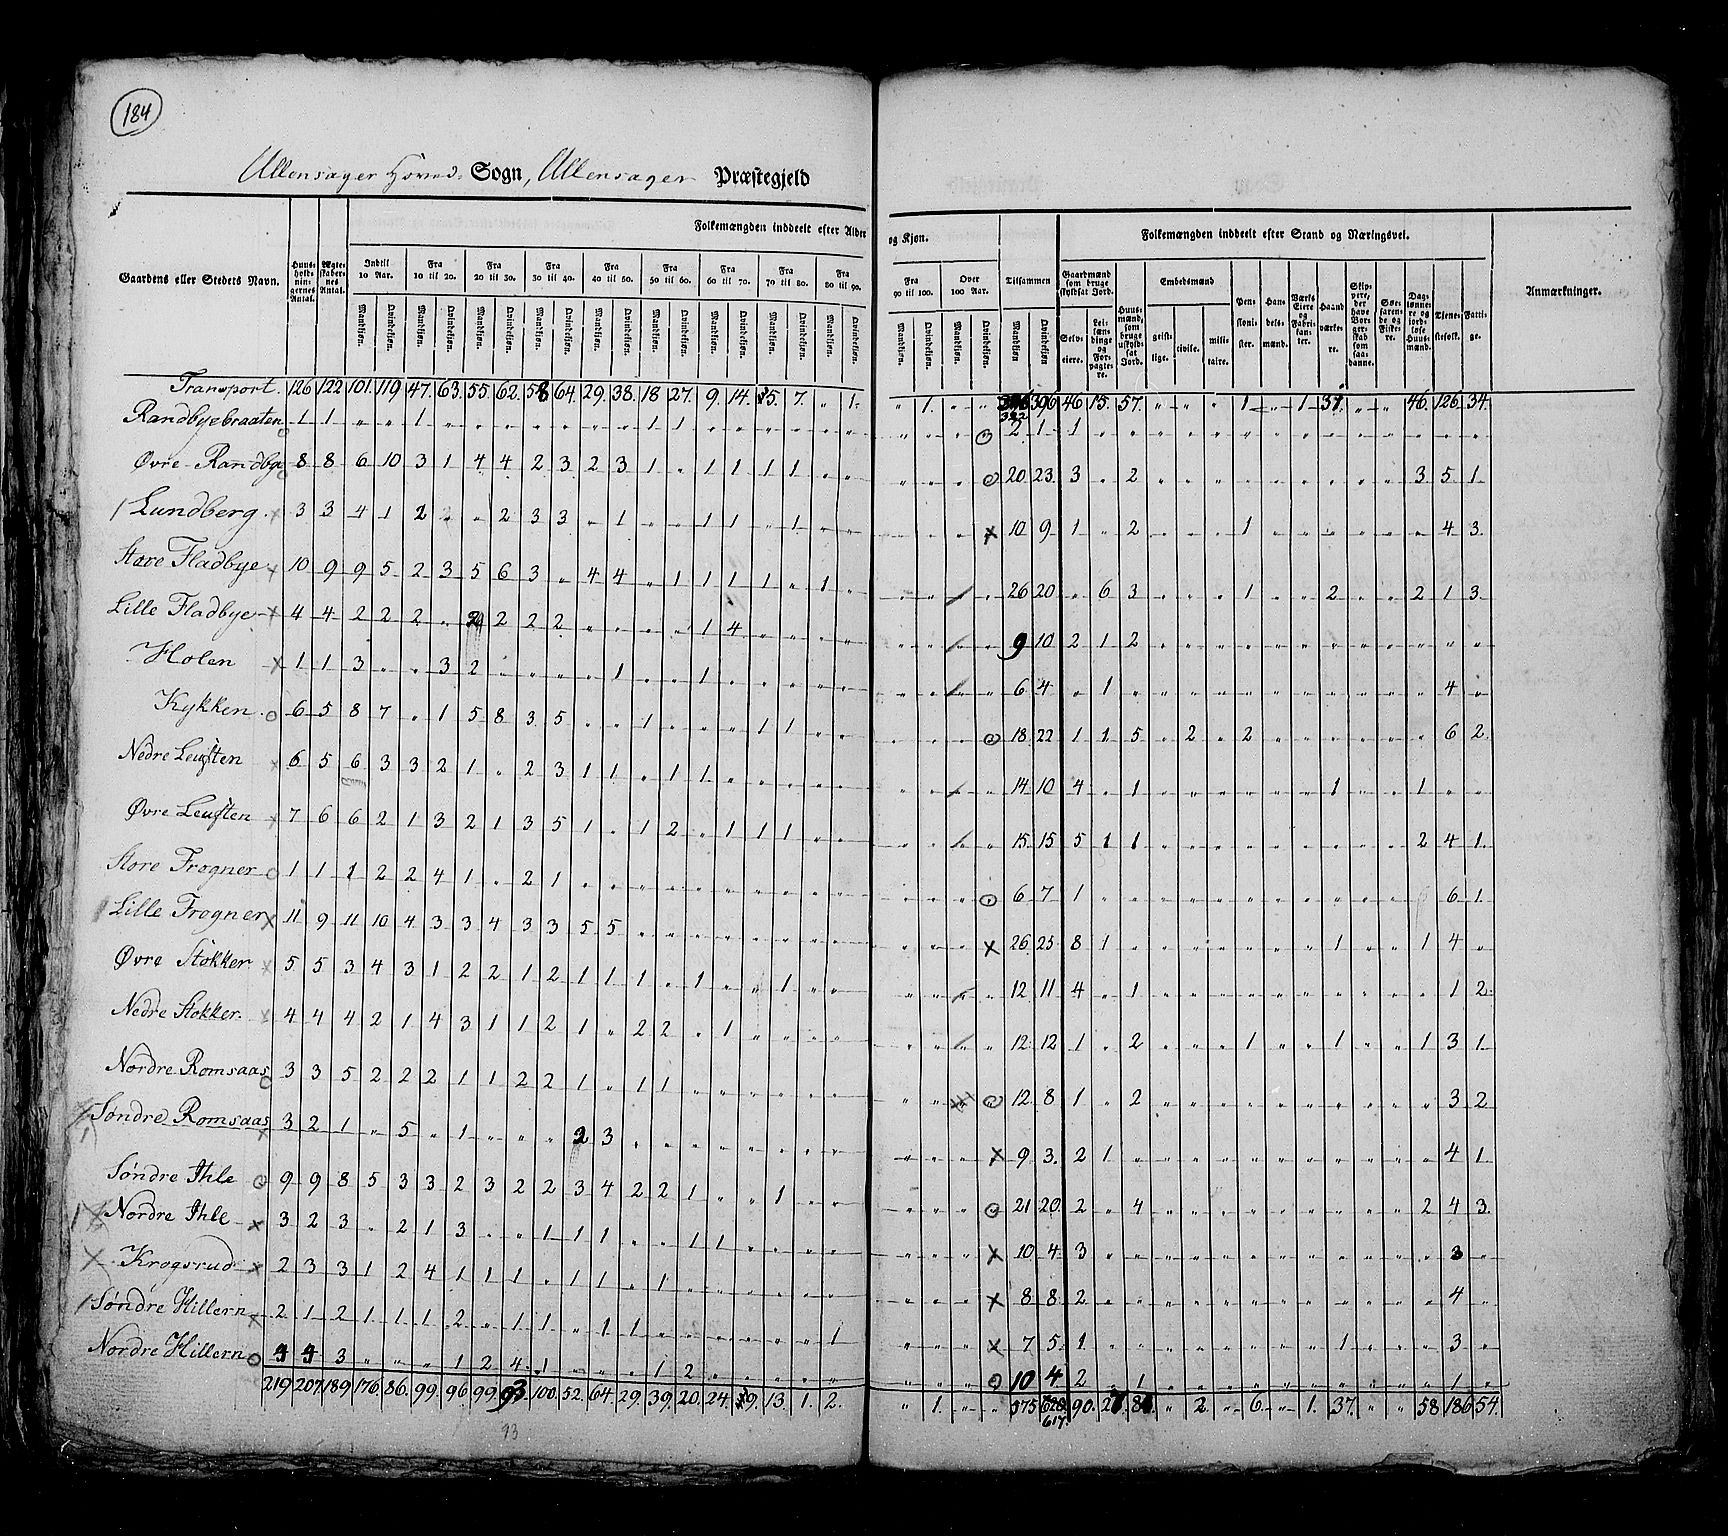 184
Ullensager Hoved Sogn, Ullensager Præstegjeld
Gaardens eller Stedets Navn. | Huusholdningernes Antal. | Ægteskabernes Antal. | Folkemængden inddeelt efter Alder og Kjøn. | Folkemængden inddeelt efter Stand og Næringsvei. | Anmærkninger.
Indtil 10 Aar. | Fra 10 til 20. | Fra 20 til 30. | Fra 30 til 40. | Fra 40 til 50. | Fra 50 til 60. | Fra 60 til 70. | Fra 70 til 80. | Fra 80 til 90. | Fra 90 til 100. | Over 100 Aar. | Tilsammen | Gaardmænd som bruge skyldsat Jord. | Huusmænd, som bruge uskyldsat Jord. | Embedsmænd | Pensionister. | Handelsmænd. | Værks Eiere og Fabrikanter. | Haandværkere. | Skippere, der have Borgerskab som saadanne. | Søefarende og Fiskere. | Daglønnere og jordløse Huusmænd. | Tjenestefolk. | Fattige.
Mandkjøn. | Qvindekjøn. | Selveiere. | Leilændinge og Forpagtere. | geistlige. | civile. | militaire.
Transport. 126 122 101. 119 47. 63. 55. 62. 58 64. 29. 38. 18 27. 9. 14. 15. 7. „ 1. „ 1. „ „ 392 396 46 15. 57. „ „ „ 1 „ 1 37. „ „ 46. 126. 34.
Randbyebraaten 1 1 „ „ 1 „ „ „ „ „ „ „ 1 1 „ „ „ „ „ „ „ „ „ 2 1 1 „ „ „ „ „ „ „ „ „ „ „ „ „ „
Øvre Randbye 8 8 6 10 3 1 4 4 2 3 2 3 1 „ 1 1 1 1 „ „ „ „ „ 20. 23. 3 „ 2 „ „ „ „ „ „ „ „ „ 3 5 1
Lundberg. 3 3 4 1 2 „ „ 2 3 3 „ 1 „ „ 1 1 „ 1 „ „ „ „ „ 10 9 1 „ 2 „ „ „ 1 „ „ „ „ „ „ 4 3
Store Fladbye 10 9 9 5 2 3 5 6 3 „ 4 4 „ 1 1 1 1 „ 1 „ „ „ „ 26 20 „ 6 3 „ „ „ 1 „ „ 2 „ „ 2 1 3
Lille Fladbye 4 4 2 2 2 „ 2 2 2 2 „ „ „ „ 1 4 „ „ „ „ „ „ „ 9 10 2 1 2 „ „ „ „ „ „ „ „ „ „ „ „
Holen 1 1 3 „ „ 3 2 „ „ „ „ 1 „ „ 1 „ „ „ „ „ „ „ „ 6 4 „ 1 „ „ „ „ „ „ „ „ „ „ „ 4 „
Kykken 6 5 8 7 „ 1 5 8 3 5 „ „ 1 „ „ „ 1 1 „ „ „ „ „ 18 22 1 1 5 „ 2 „ 2 „ „ „ „ „ „ 6 2
Nedre Leuften 6 5 6 3 3 2 1 „ 2 3 1 1 „ 1 1 „ „ „ „ „ „ „ „ 14 10 4 „ 1 „ „ „ „ „ „ 1 „ „ 1 „ „
Øvre Leuften 7 6 6 2 1 3 2 1 3 5 1 „ 1 2 „ 1 1 1 „ „ „ „ „ 15 15 5 1 1 „ „ „ „ „ „ „ „ „ 2 4 1
Store Frogner 1 1 1 2 2 4 1 „ 2 1 „ „ „ „ „ „ „ „ „ „ „ „ „ 6 7 1 „ „ „ „ „ „ „ „ „ „ „ „ 6 1
Lille Frogner 11 9 11 10 4 3 3 4 3 3 5 5 „ „ „ „ „ „ „ „ „ „ „ 26 25 8 1 „ „ „ „ „ „ „ 1 „ „ 1 4 „
Øvre Stokker 5 5 3 4 3 1 2 2 1 2 1 1 1 „ 1 „ „ 1 „ „ „ „ „ 12 11 4 „ 1 „ „ „ „ „ „ „ „ „ „ 1 2
Nedre Stokker. 4 4 4 2 1 4 3 1 1 2 1 „ 2 2 „ 1 „ „ „ „ „ „ „ 12 12 1 „ 2 „ „ „ 1 „ „ 1 „ „ 1 3 1
Nordre Romsaas 3 3 5 2 2 2 1 1 2 2 1 „ 1 1 „ „ „ „ „ „ „ „ 12 8 1 „ 2 „ „ „ „ „ „ „ „ „ „ 3 2
Søndre Romsaas 3 2 1 „ 5 „ 1 „ „ „ 2 3 „ „ „ „ „ „ „ „ „ „ „ 9 3. 2 1 „ „ „ „ „ „ „ „ „ „ „ 4 1
Søndre Ihle 9 9 8 5 3 3 2 3 2 2 3 4 2 2 1 „ „ 1 „ „ „ „ „ 21 20. 2 „ 4 „ „ „ „ „ „ „ „ „ 2 4 3
Nordre Ihle 3 2 3 „ 2 1 3 „ „ 1 1 1 „ „ 1 1 „ „ „ „ „ „ „ 10 4 3 „ „ „ „ „ „ „ „ „ „ „ „ 3 „
Krogsrud 2 3 3 1 2 4 1 1 1 „ 1 1 „ 1 „ „ „ „ „ „ „ „ „ 8 8 2 „ „ „ „ „ „ „ „ „ „ „ „ 4 „
Søndre Hillern 2 1 2 1 1 1 2 „ 1 1 „ 1 1 „ „ „ „ „ „ 1 „ „ „ 7 5 1 „ „ „ „ „ „ „ „ 1 „ „ „ 3 „
Nordre Hillern 4 4 3 „ „ „ 1 2 4 1 „ „ „ 1 2 „ „ „ „ „ „ „ „ 10 4 2 „ 1 „ „ „ „ „ „ „ „ „ „ 1 „
219. 207. 189. 176. 86. 99. 96. 99. 93. 100. 52. 64. 29. 39. 20. 24. 19. 13. 1. 2. „ 1. „ „ 575 628. 90. 27. „ 2 „ 6. „ 1. 37. „ „ 58 186 54.
617
93